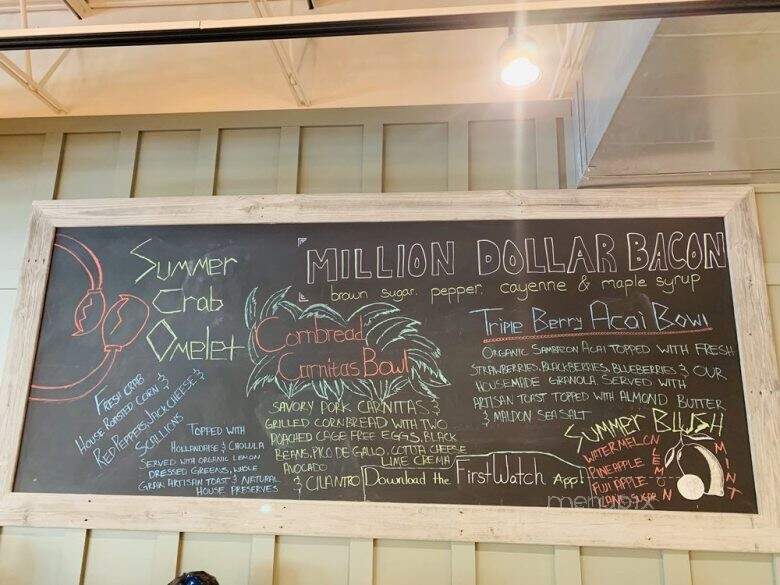 Summer
Crab
Omelet
Fresh crab
House Roasted Corn &
Red Peppers, Jack Cheese &
Scallions
Topped with
Hollandaise & Cholula
Served with organic lemon
dressed greens, whole
Grain Artisan Toast & Natural
House Preserves
MILLION DOLLAR BACON
brown sugar, pepper, cayenne & maple syrup
Cornbread
Carnitas Bowl
Savory pork carnitas &
grilled cornbread with two
poached cage free eggs, black
beans, pico de gallo, cotija cheese
Lime crema
avocado
& cilantro
Triple Berry Acai Bowl
Organic Sambazon Acai topped with fresh
strawberries, blackberries, blueberries & our
housemade granola. Served with
artisan toast topped with almond butter
& maldon sea salt
Summer Blush
Watermelon
Pineapple
Fuji Apple
Cane Sugar
LEMON
MINT
Download the First Watch App!
menupix